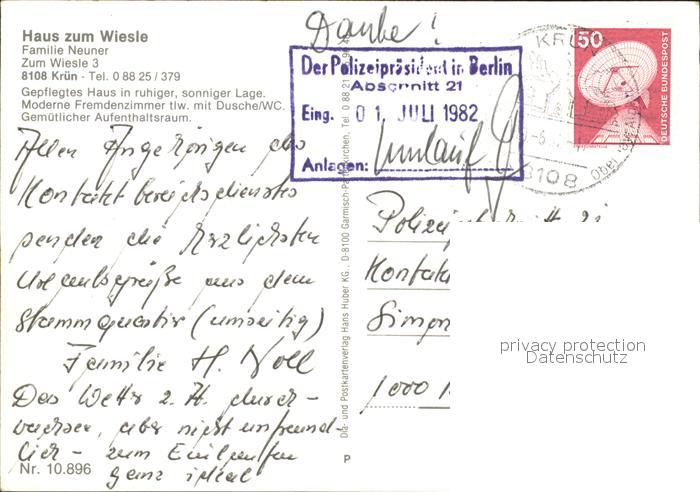 Haus zum Wiesle
Familie Neuner
Zum Wiesle 3
8108 Krün - Tel. 0 88 25 / 379
Gepflegtes Haus in ruhiger, sonniger Lage.
Moderne Fremdenzimmer tlw. mit Dusche/WC.
Gemütlicher Aufenthaltsraum.
Allen Angehörigen des
Kontaktbereichsdienstes
senden die herzlichsten
Urlaubsgrüße aus dem
Stammquartier (umseitig)
Familie H. Noll
Das Wetter z. Zt. durch-
wachsen, aber nicht unfreund-
lich - zum Einlaufen
ganz ideal
Nr. 10.896
Danke!
Der Polizeipräsident in Berlin
Abschnitt 21
Eing. 0 1. JULI 1982
Anlagen:
Umlauf
KRÜN
8108
50
DEUTSCHE BUNDESPOST
Dia- und Postkartenverlag Hans Huber KG, D-8100 Garmisch-Partenkirchen, Tel. 0 88 21
P
Polizei
Kontakt
1000
privacy protection
Datenschutz